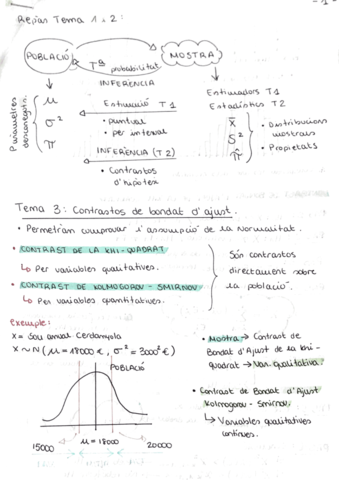 - 1 -
Repàs Tema 1 i 2:
POBLACIÓ
Tª probabilitat
MOSTRA
INFERÈNCIA
Paràmetres desconeguts.
μ
σ²
π
Estimació T1
• puntual
• per interval
INFERÈNCIA (T2)
• Contrastos d'hipòtesi
Estimadors T1
Estadístics T2
X̄
S²
π̂
• Distribucions mostrals
• Propietats
Tema 3: Contrastos de bondat d'ajust.
• Permetran comprovar l'assumpció de la Normalitat.
• CONTRAST DE LA KHI-QUADRAT
↳ Per variables qualitatives.
• CONTRAST DE KOLMOGOROV - SMIRNOV
↳ Per variables quantitatives.
Són contrastos
directament sobre
la població.
Exemple:
X = Sou anual Cerdanyola
X ~ N (μ = 18000 €, σ² = 3000² €)
POBLACIÓ
15000
μ = 18000
20000
• Mostra → Contrast de
Bondat d'Ajust de la khi-
quadrat → Var. qualitativa.
• Contrast de Bondat d'Ajust
Kolmogorov - Smirnov.
↳ Variables qualitatives
contínues.